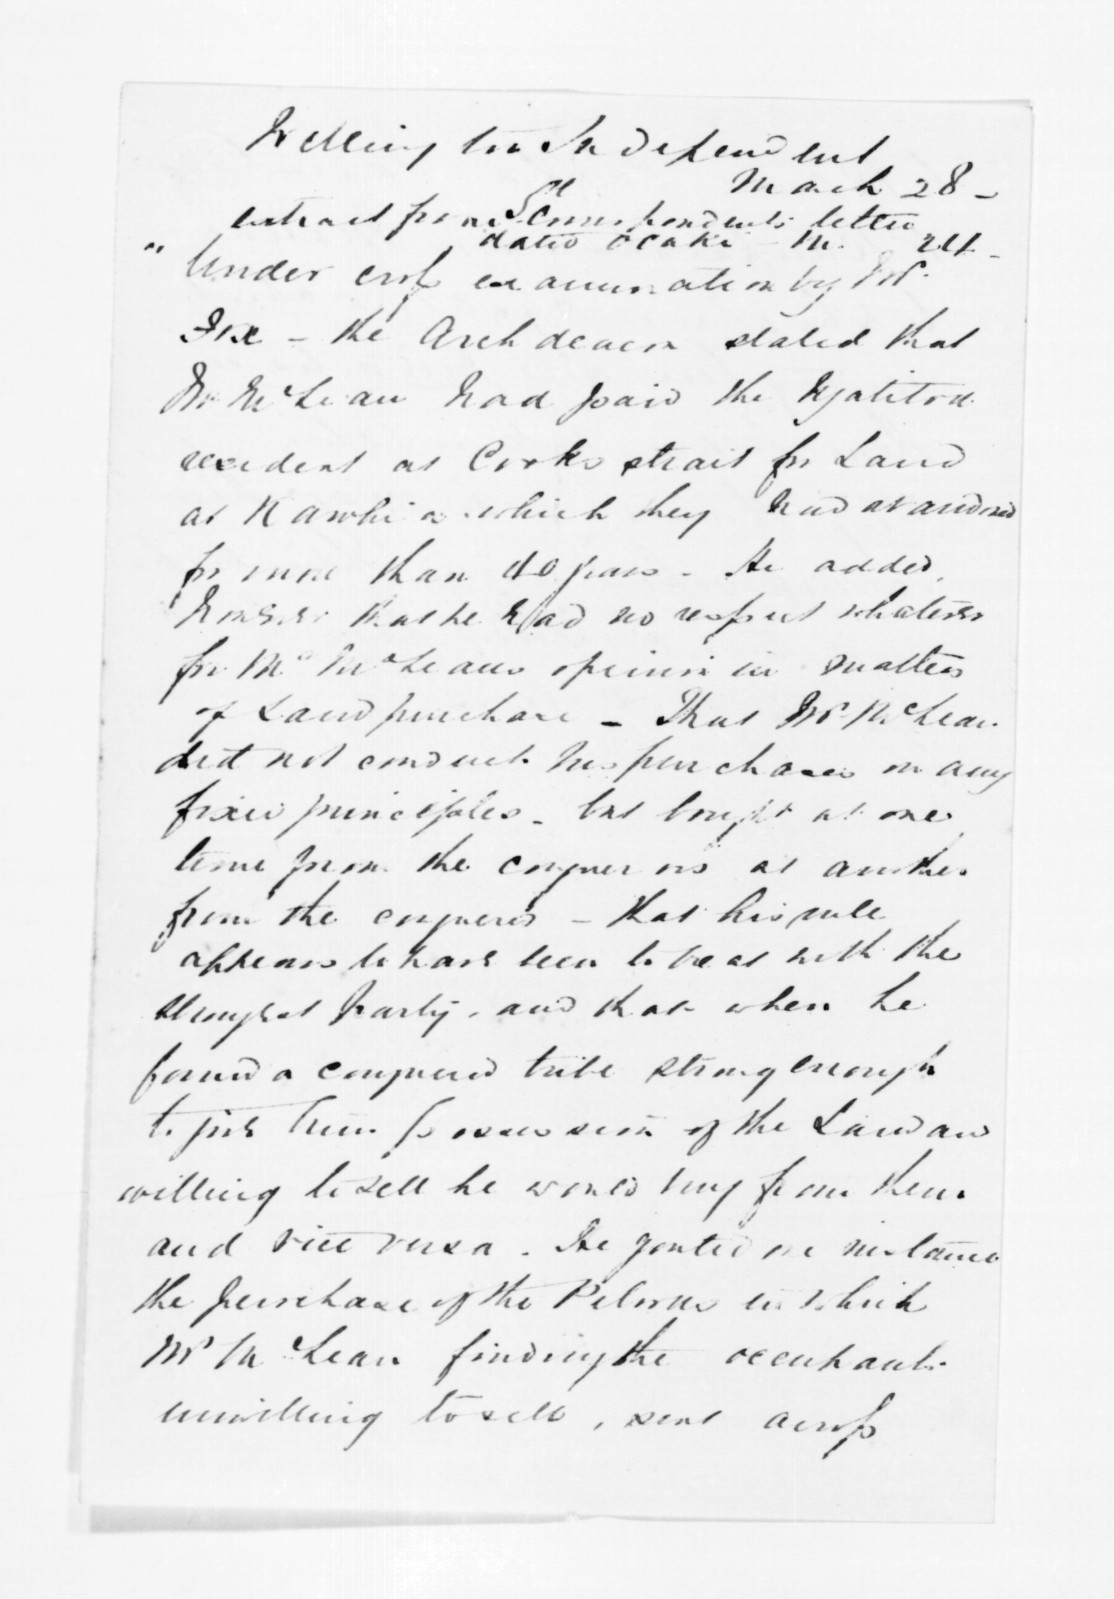 Wellington Independent
March 28 -
extract from Correspondents letter
dated Otaki - M. 24 -
" Under cross examination by Mr
Fox - the Archdeacon stated that
Mr McLean had paid the Ngatitoa
resident at Cooks strait for Land
at Kawhia which they had abandoned
for more than 40 years - He added,
however that he had no respect whatever
for Mr McLeans opinion in matters
of Land purchase - That Mr McLean
did not conduct his purchases on any
fixed principles - but bought at one
time from the conquerors at another
from the conquered - that his rule
appears to have been to treat with the
strongest Party, and that when he
found a conquered tribe strong enough
to give him possession of the Land and
willing to sell he would buy from them
and vice versa. He quoted one instance
the purchase of the Pelorus in which
Mr McLean finding the occupants
unwilling to sell, sent across